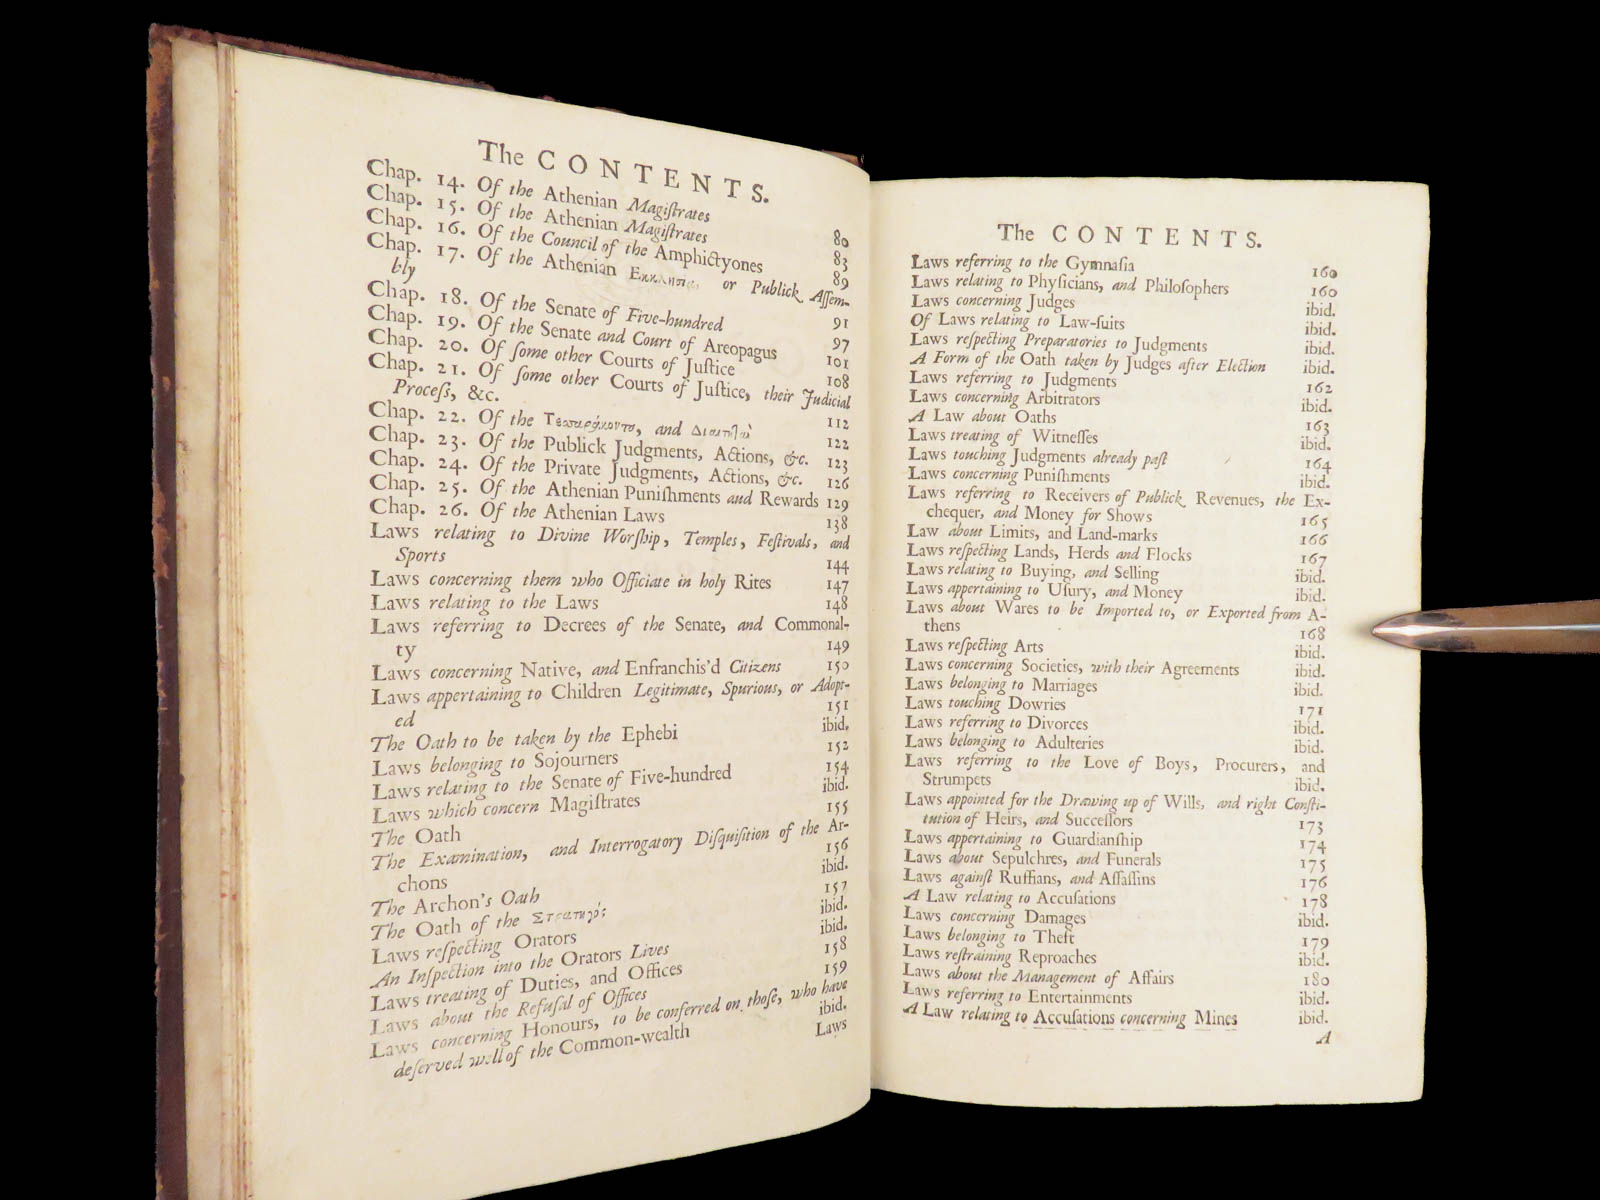 The CONTENTS.
Chap. 14. Of the Athenian Magiſtrates 80
Chap. 15. Of the Athenian Magiſtrates 83
Chap. 16. Of the Council of the Amphictyones 89
Chap. 17. Of the Athenian Εκκλησια, or Publick Aſſem-
bly 91
Chap. 18. Of the Senate of Five-hundred 97
Chap. 19. Of the Senate and Court of Areopagus 101
Chap. 20. Of ſome other Courts of Juſtice 108
Chap. 21. Of ſome other Courts of Juſtice, their Judicial
Proceſs, &c. 112
Chap. 22. Of the and 122
Chap. 23. Of the Publick Judgments, Actions, &c. 123
Chap. 24. Of the Private Judgments, Actions, &c. 126
Chap. 25. Of the Athenian Puniſhments and Rewards 129
Chap. 26. Of the Athenian Laws 138
Laws relating to Divine Worſhip, Temples, Feſtivals, and
Sports 144
Laws concerning them who Officiate in holy Rites 147
Laws relating to the Laws 148
Laws referring to Decrees of the Senate, and Commonal-
ty 149
Laws concerning Native, and Enfranchis'd Citizens 150
Laws appertaining to Children Legitimate, Spurious, or Adopt-
ed 151
The Oath to be taken by the Ephebi ibid.
Laws belonging to Sojourners 152
Laws relating to the Senate of Five-hundred 154
Laws which concern Magiſtrates ibid.
The Oath 155
The Examination, and Interrogatory Diſquiſition of the Ar-
chons 156
The Archon's Oath ibid.
The Oath of the 157
Laws reſpecting Orators ibid.
An Inſpection into the Orators Lives ibid.
Laws treating of Duties, and Offices 158
Laws about the Refuſal of Offices 159
Laws concerning Honours, to be conferred on thoſe, who have
deſerved well of the Common-wealth ibid.
Laws
The CONTENTS.
Laws referring to the Gymnaſia 160
Laws relating to Phyſicians, and Philoſophers 160
Laws concerning Judges ibid.
Of Laws relating to Law-ſuits ibid.
Laws reſpecting Preparatories to Judgments ibid.
A Form of the Oath taken by Judges after Election ibid.
Laws referring to Judgments 162
Laws concerning Arbitrators ibid.
A Law about Oaths 163
Laws treating of Witneſſes ibid.
Laws touching Judgments already paſt 164
Laws concerning Puniſhments ibid.
Laws referring to Receivers of Publick Revenues, the Ex-
chequer, and Money for Shows 165
Law about Limits, and Land-marks 166
Laws reſpecting Lands, Herds and Flocks 167
Laws relating to Buying, and Selling ibid.
Laws appertaining to Uſury, and Money ibid.
Laws about Wares to be Imported to, or Exported from A-
thens 168
Laws reſpecting Arts ibid.
Laws concerning Societies, with their Agreements ibid.
Laws belonging to Marriages ibid.
Laws touching Dowries 171
Laws referring to Divorces ibid.
Laws belonging to Adulteries ibid.
Laws referring to the Love of Boys, Procurers, and
Strumpets ibid.
Laws appointed for the Drawing up of Wills, and right Conſti-
tution of Heirs, and Succeſſors 173
Laws appertaining to Guardianſhip 174
Laws about Sepulchres, and Funerals 175
Laws againſt Ruffians, and Aſſaſſins 176
A Law relating to Accuſations 178
Laws concerning Damages ibid.
Laws belonging to Theft 179
Laws reſtraining Reproaches ibid.
Laws about the Management of Affairs 180
Laws referring to Entertainments ibid.
A Law relating to Accuſations concerning Mines ibid.
A